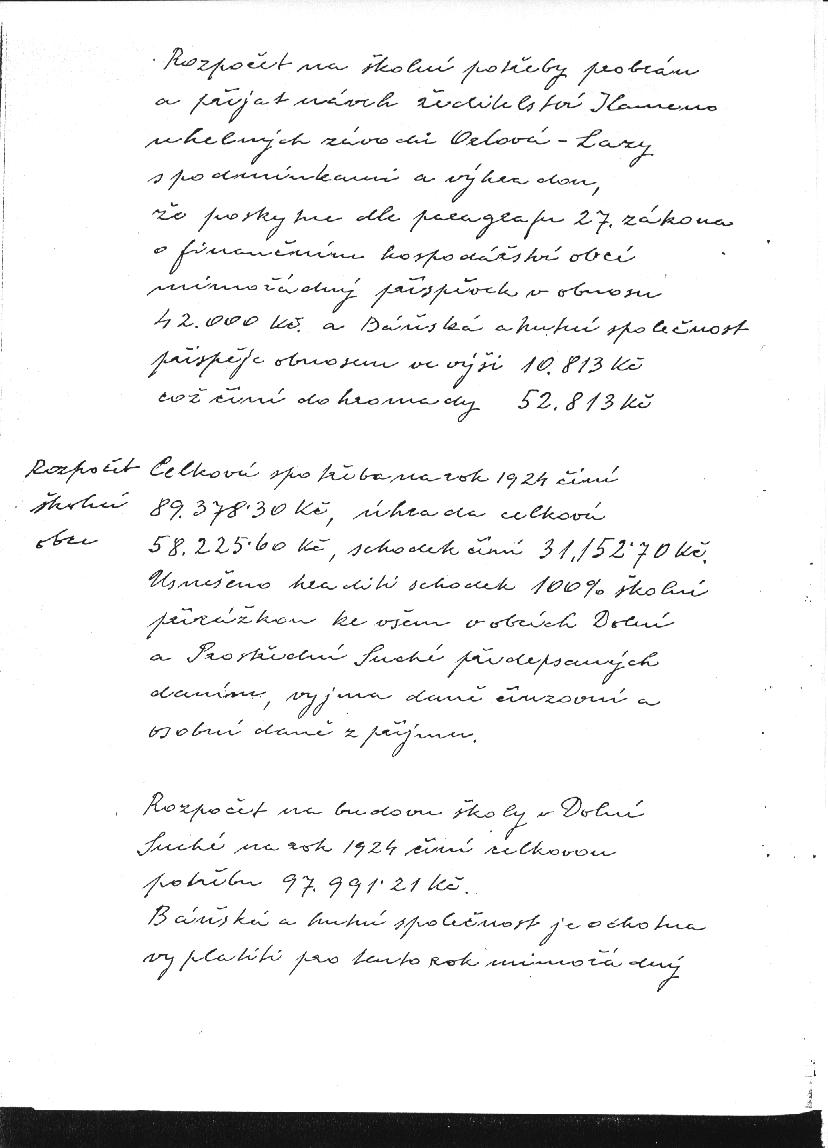 Rozpočet na školní potřeby probrán
a přijat návrh ředitelství Kameno
uhelných závodů Orlová - Lazy
s podmínkami a výhradou,
že poskytne dle paragrafu 27. zákona
o finančním hospodářství obcí
mimořádný příspěvek v obnosu
42.000 Kč. a Báňská a hutní společnost
přispěje obnosem ve výši 10.813 Kč
což činí dohromady 52.813 Kč
Rozpočet
školní
obce
Celková spotřeba na rok 1924 činí
89.378·30 Kč, úhrada celková
58.225·60 Kč, schodek činí 31,152·70 Kč.
Usnešeno hraditi schodek 100% školní
přirážkou ke všem v obcích Dolní
a Prostřední Suché předepsaných
daním, vyjma daně činzovní a
osobní daně z příjmu.
Rozpočet na budovu školy v Dolní
Suché na rok 1924 činí celkovou
potřebu 97.991·21 Kč.
Báňská a hutní společnost je ochotna
vyplatiti pro tento rok mimořádný